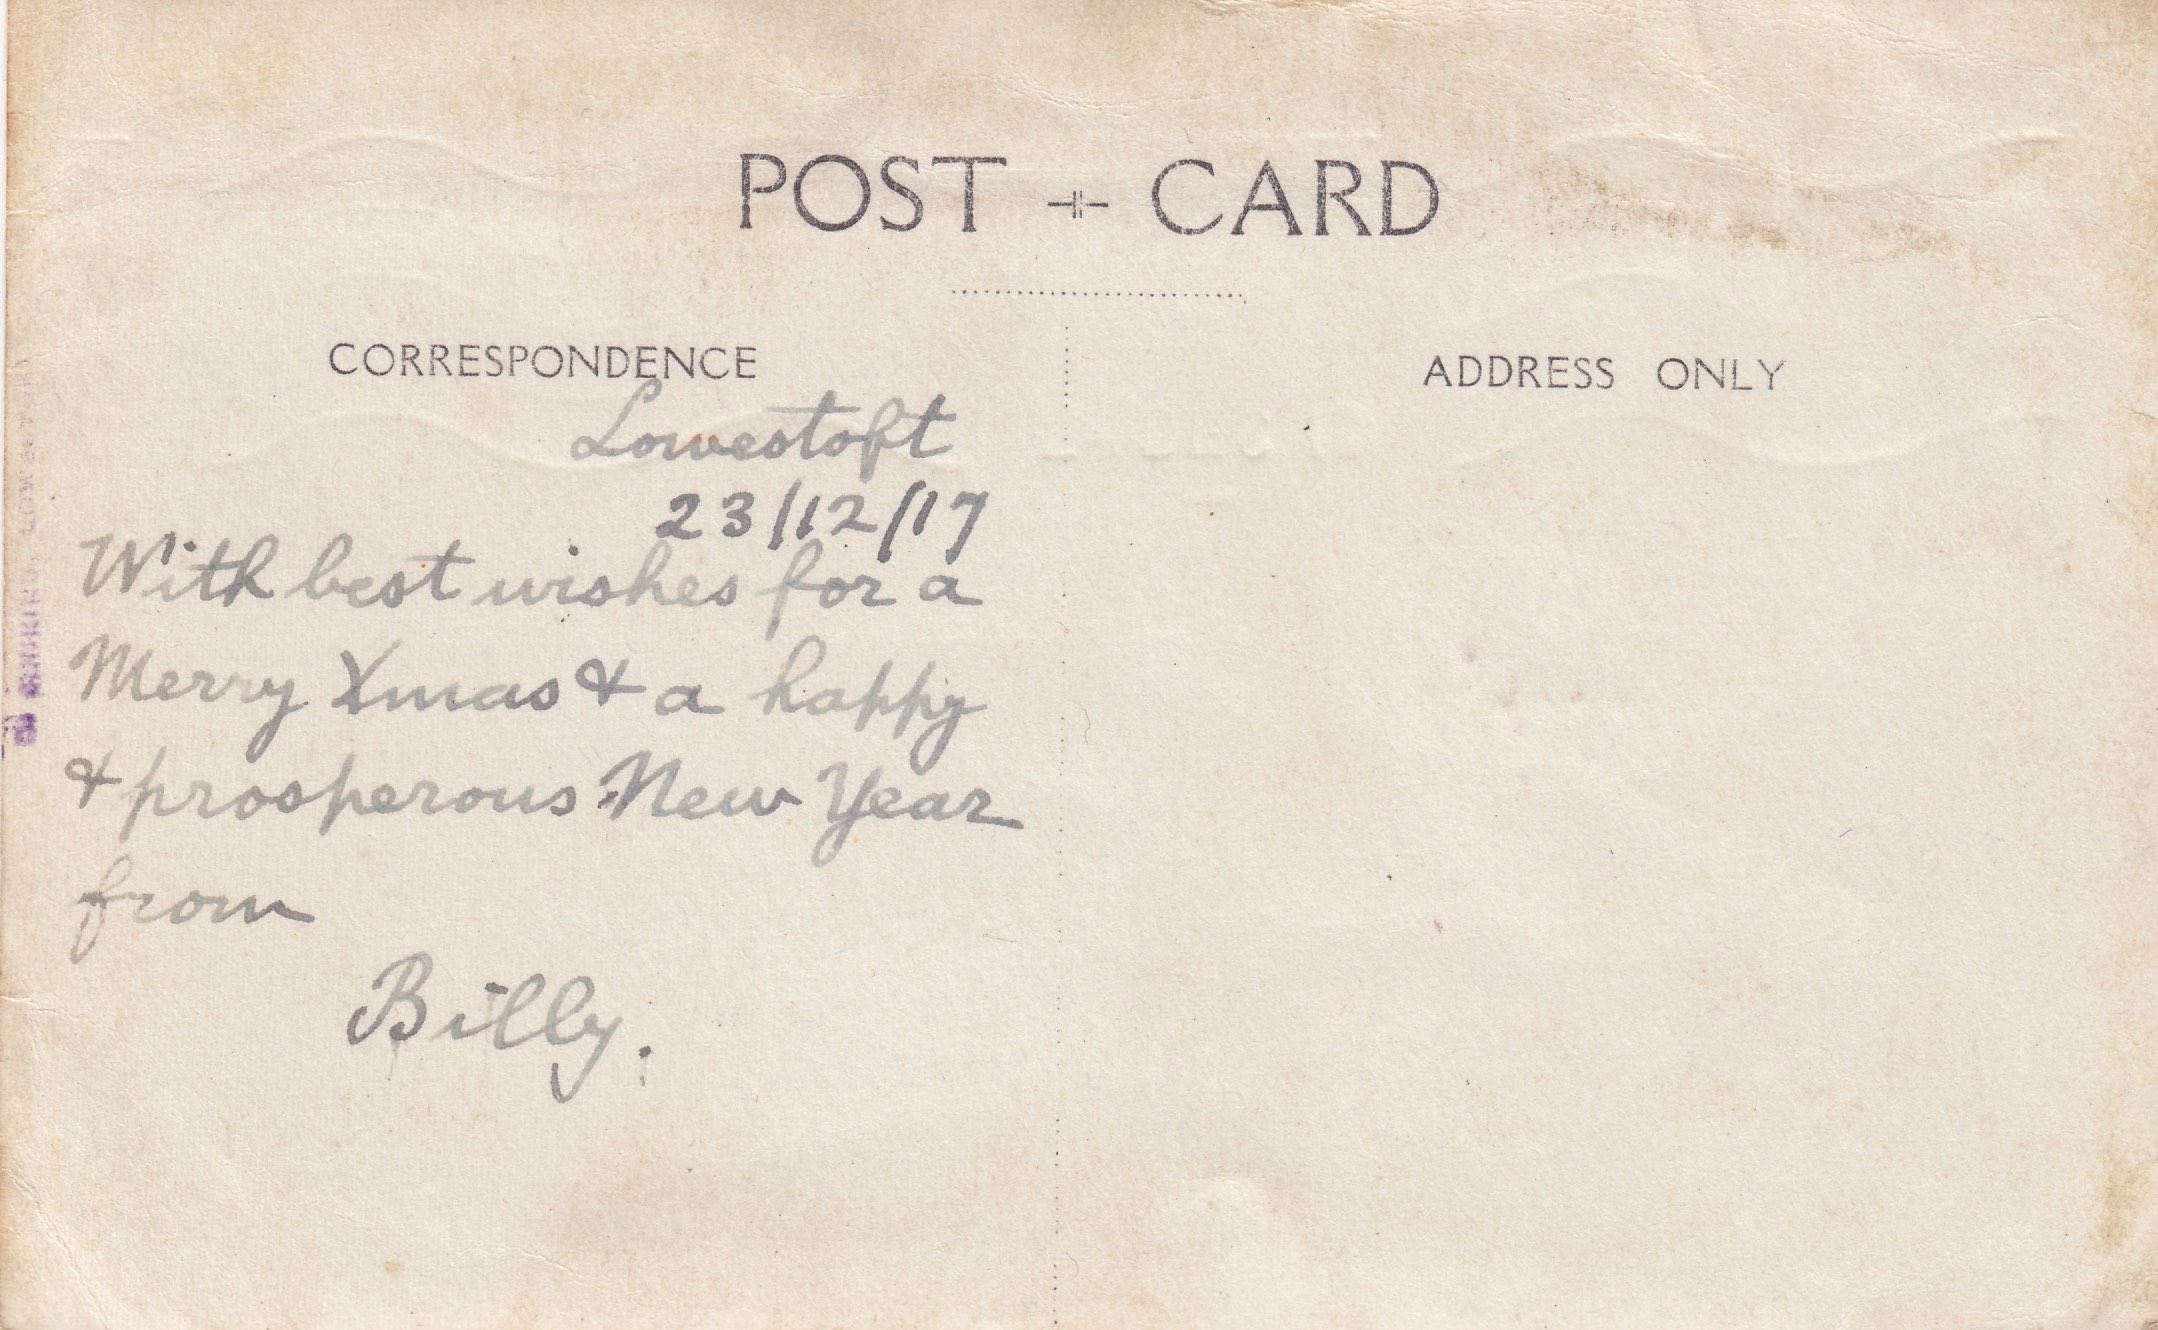 POST CARD
CORRESPONDENCE
ADDRESS ONLY
Lowestoft
23/12/17
With best wishes for a
Merry Xmas & a happy
& prosperous New Year
from
Billy.